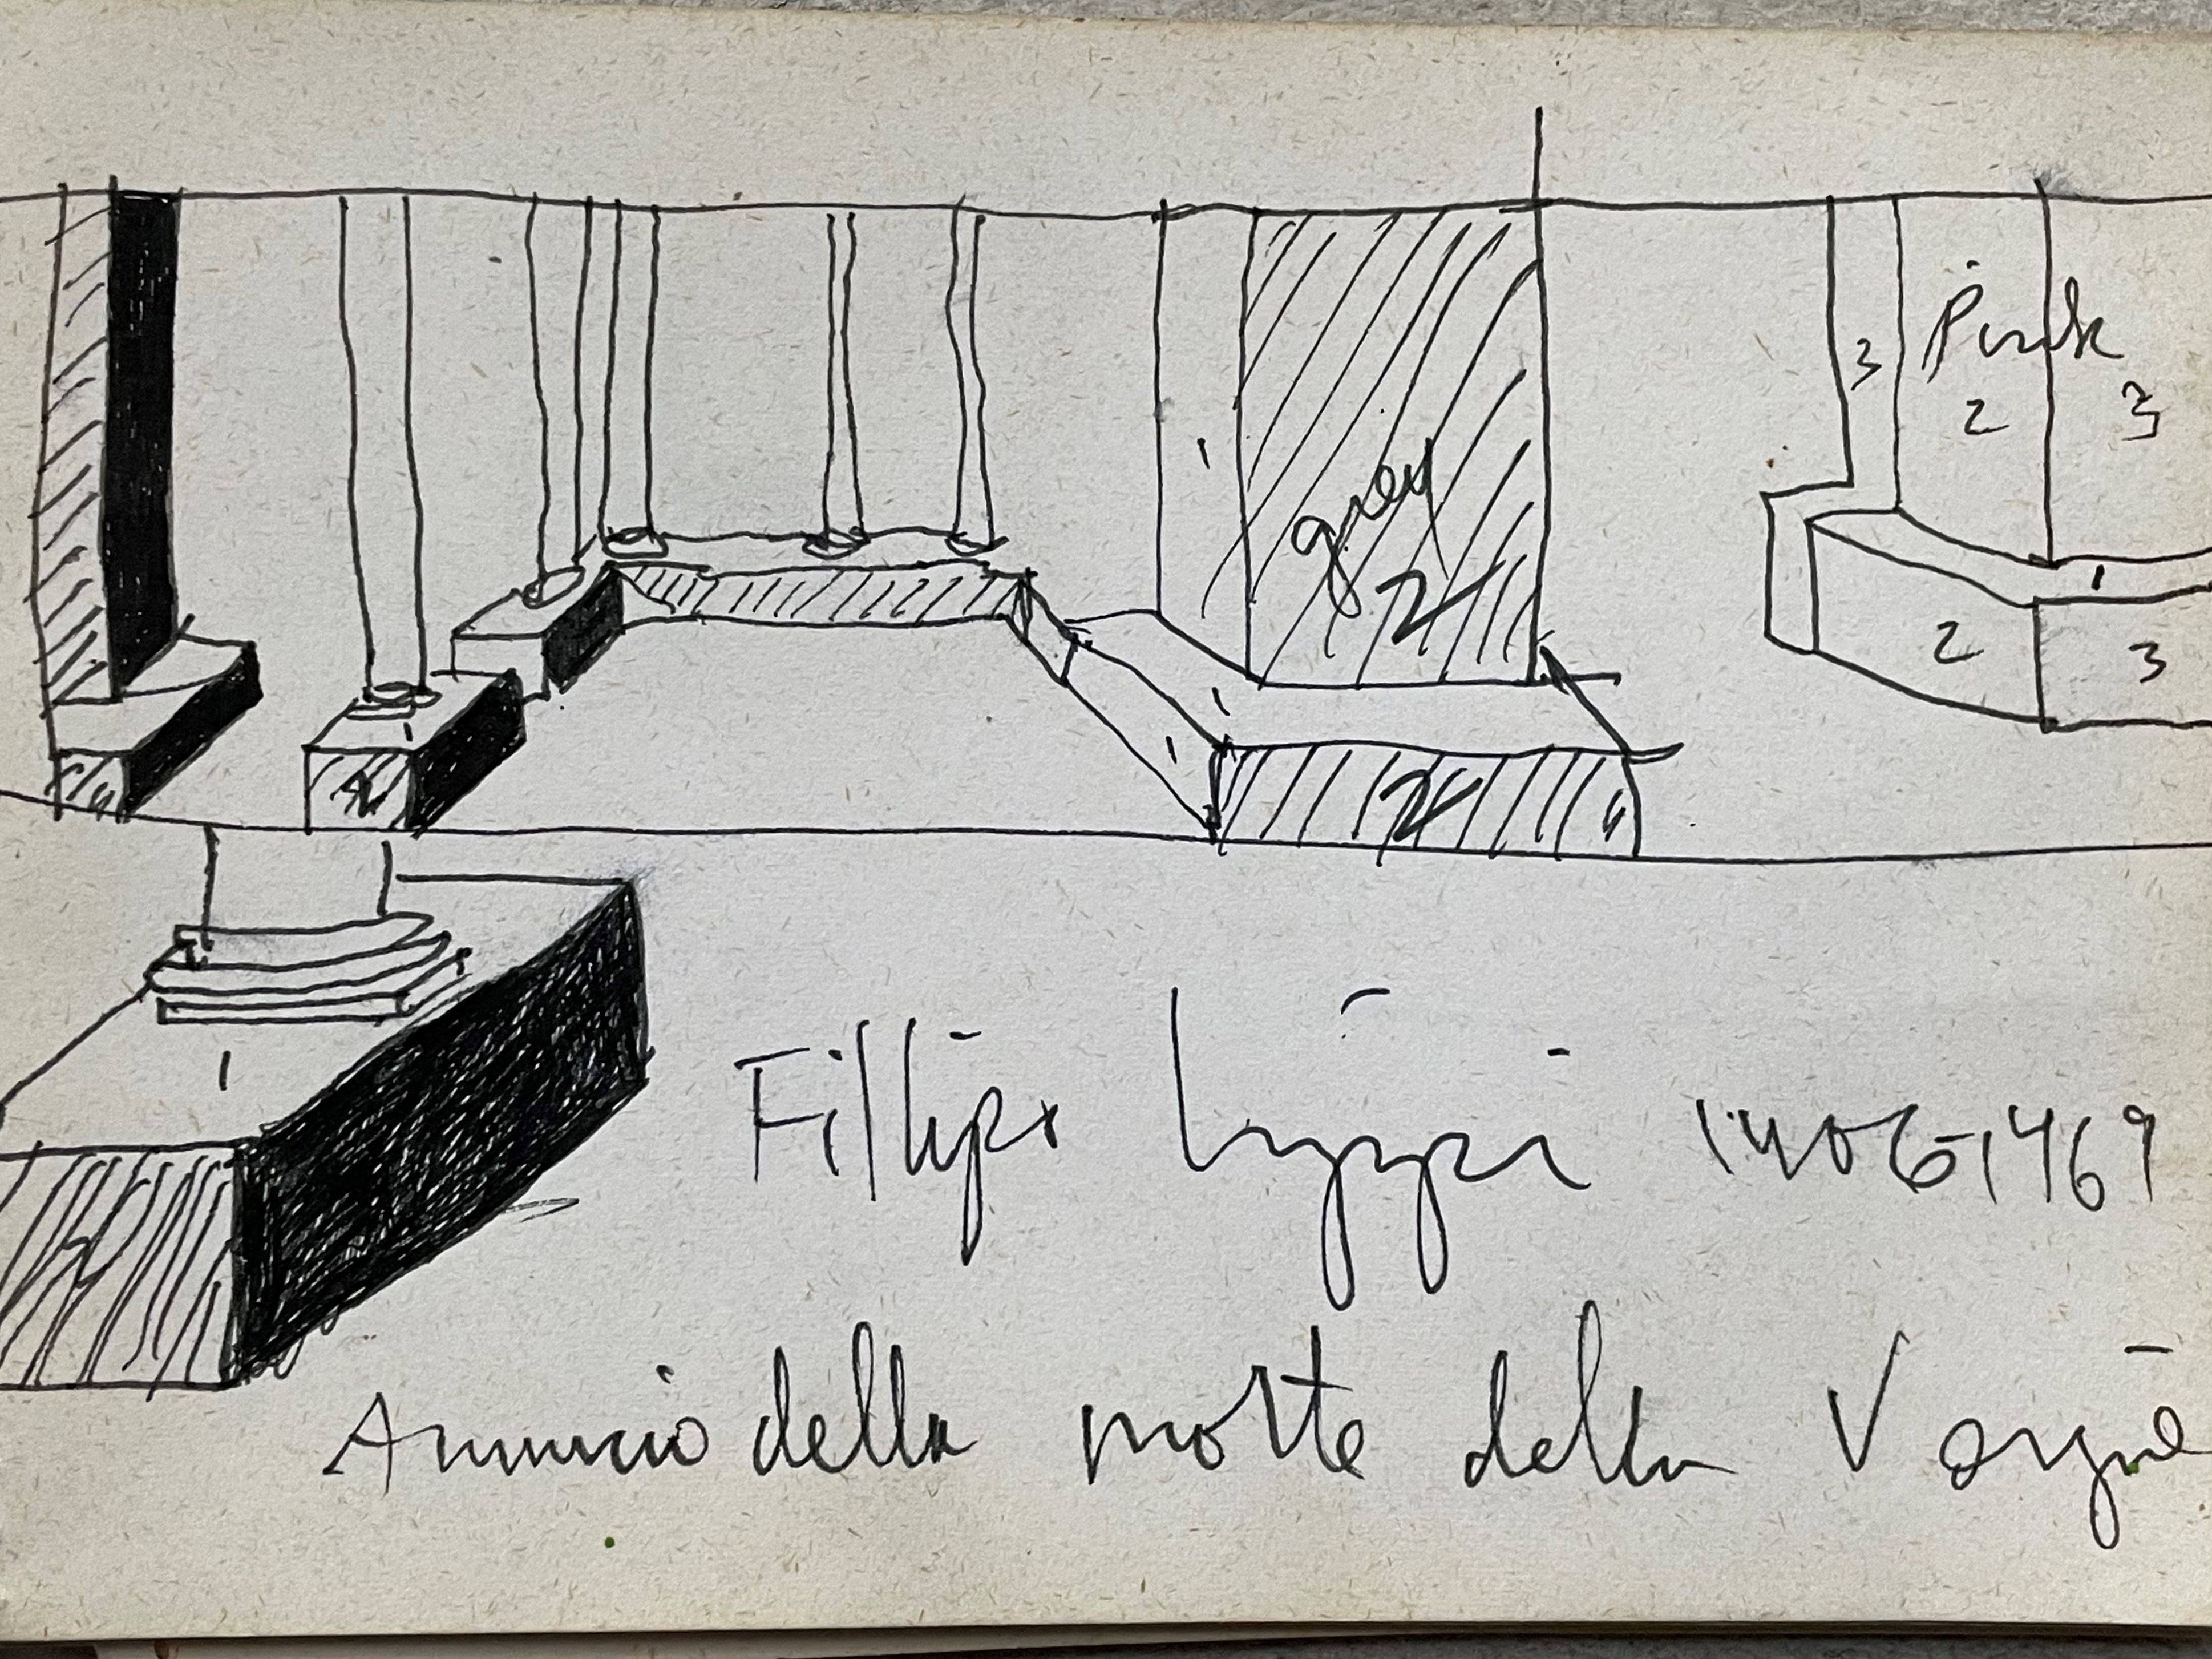 3 Pink
2 3
1
grey
2
1
2 3
1
1
2
2
1
Fillipo Lippi 1406-1469
Annuncio della morte della Vergine